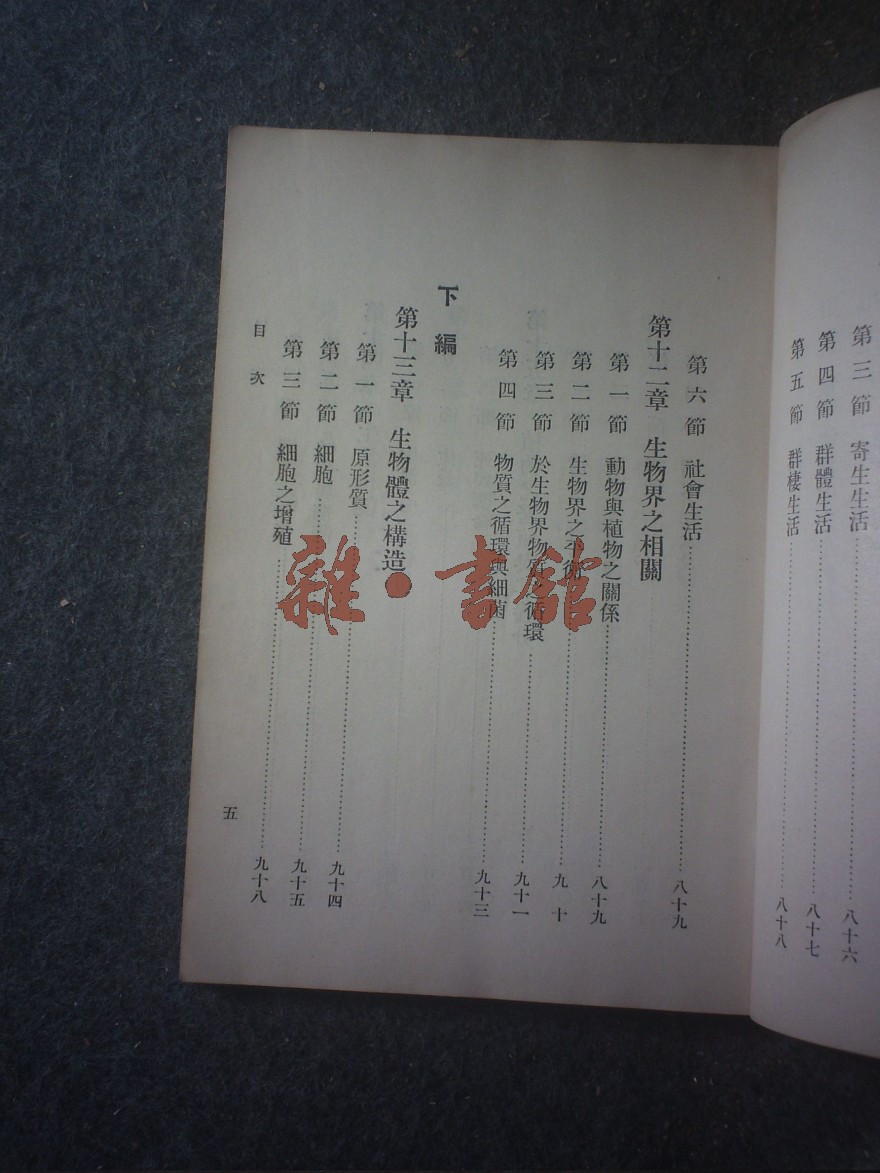 第三節 寄生生活 八十六
第四節 群體生活 八十七
第五節 群棲生活 八十八
第六節 社會生活 八十九
第十二章 生物界之相關
第一節 動物與植物之關係 八十九
第二節 生物界之平衡 九十
第三節 於生物界物質之循環 九十一
第四節 物質之循環與細菌 九十三
下編
第十三章 生物體之構造
第一節 原形質 九十四
第二節 細胞 九十五
第三節 細胞之增殖 九十八
目次 五
雜·書館